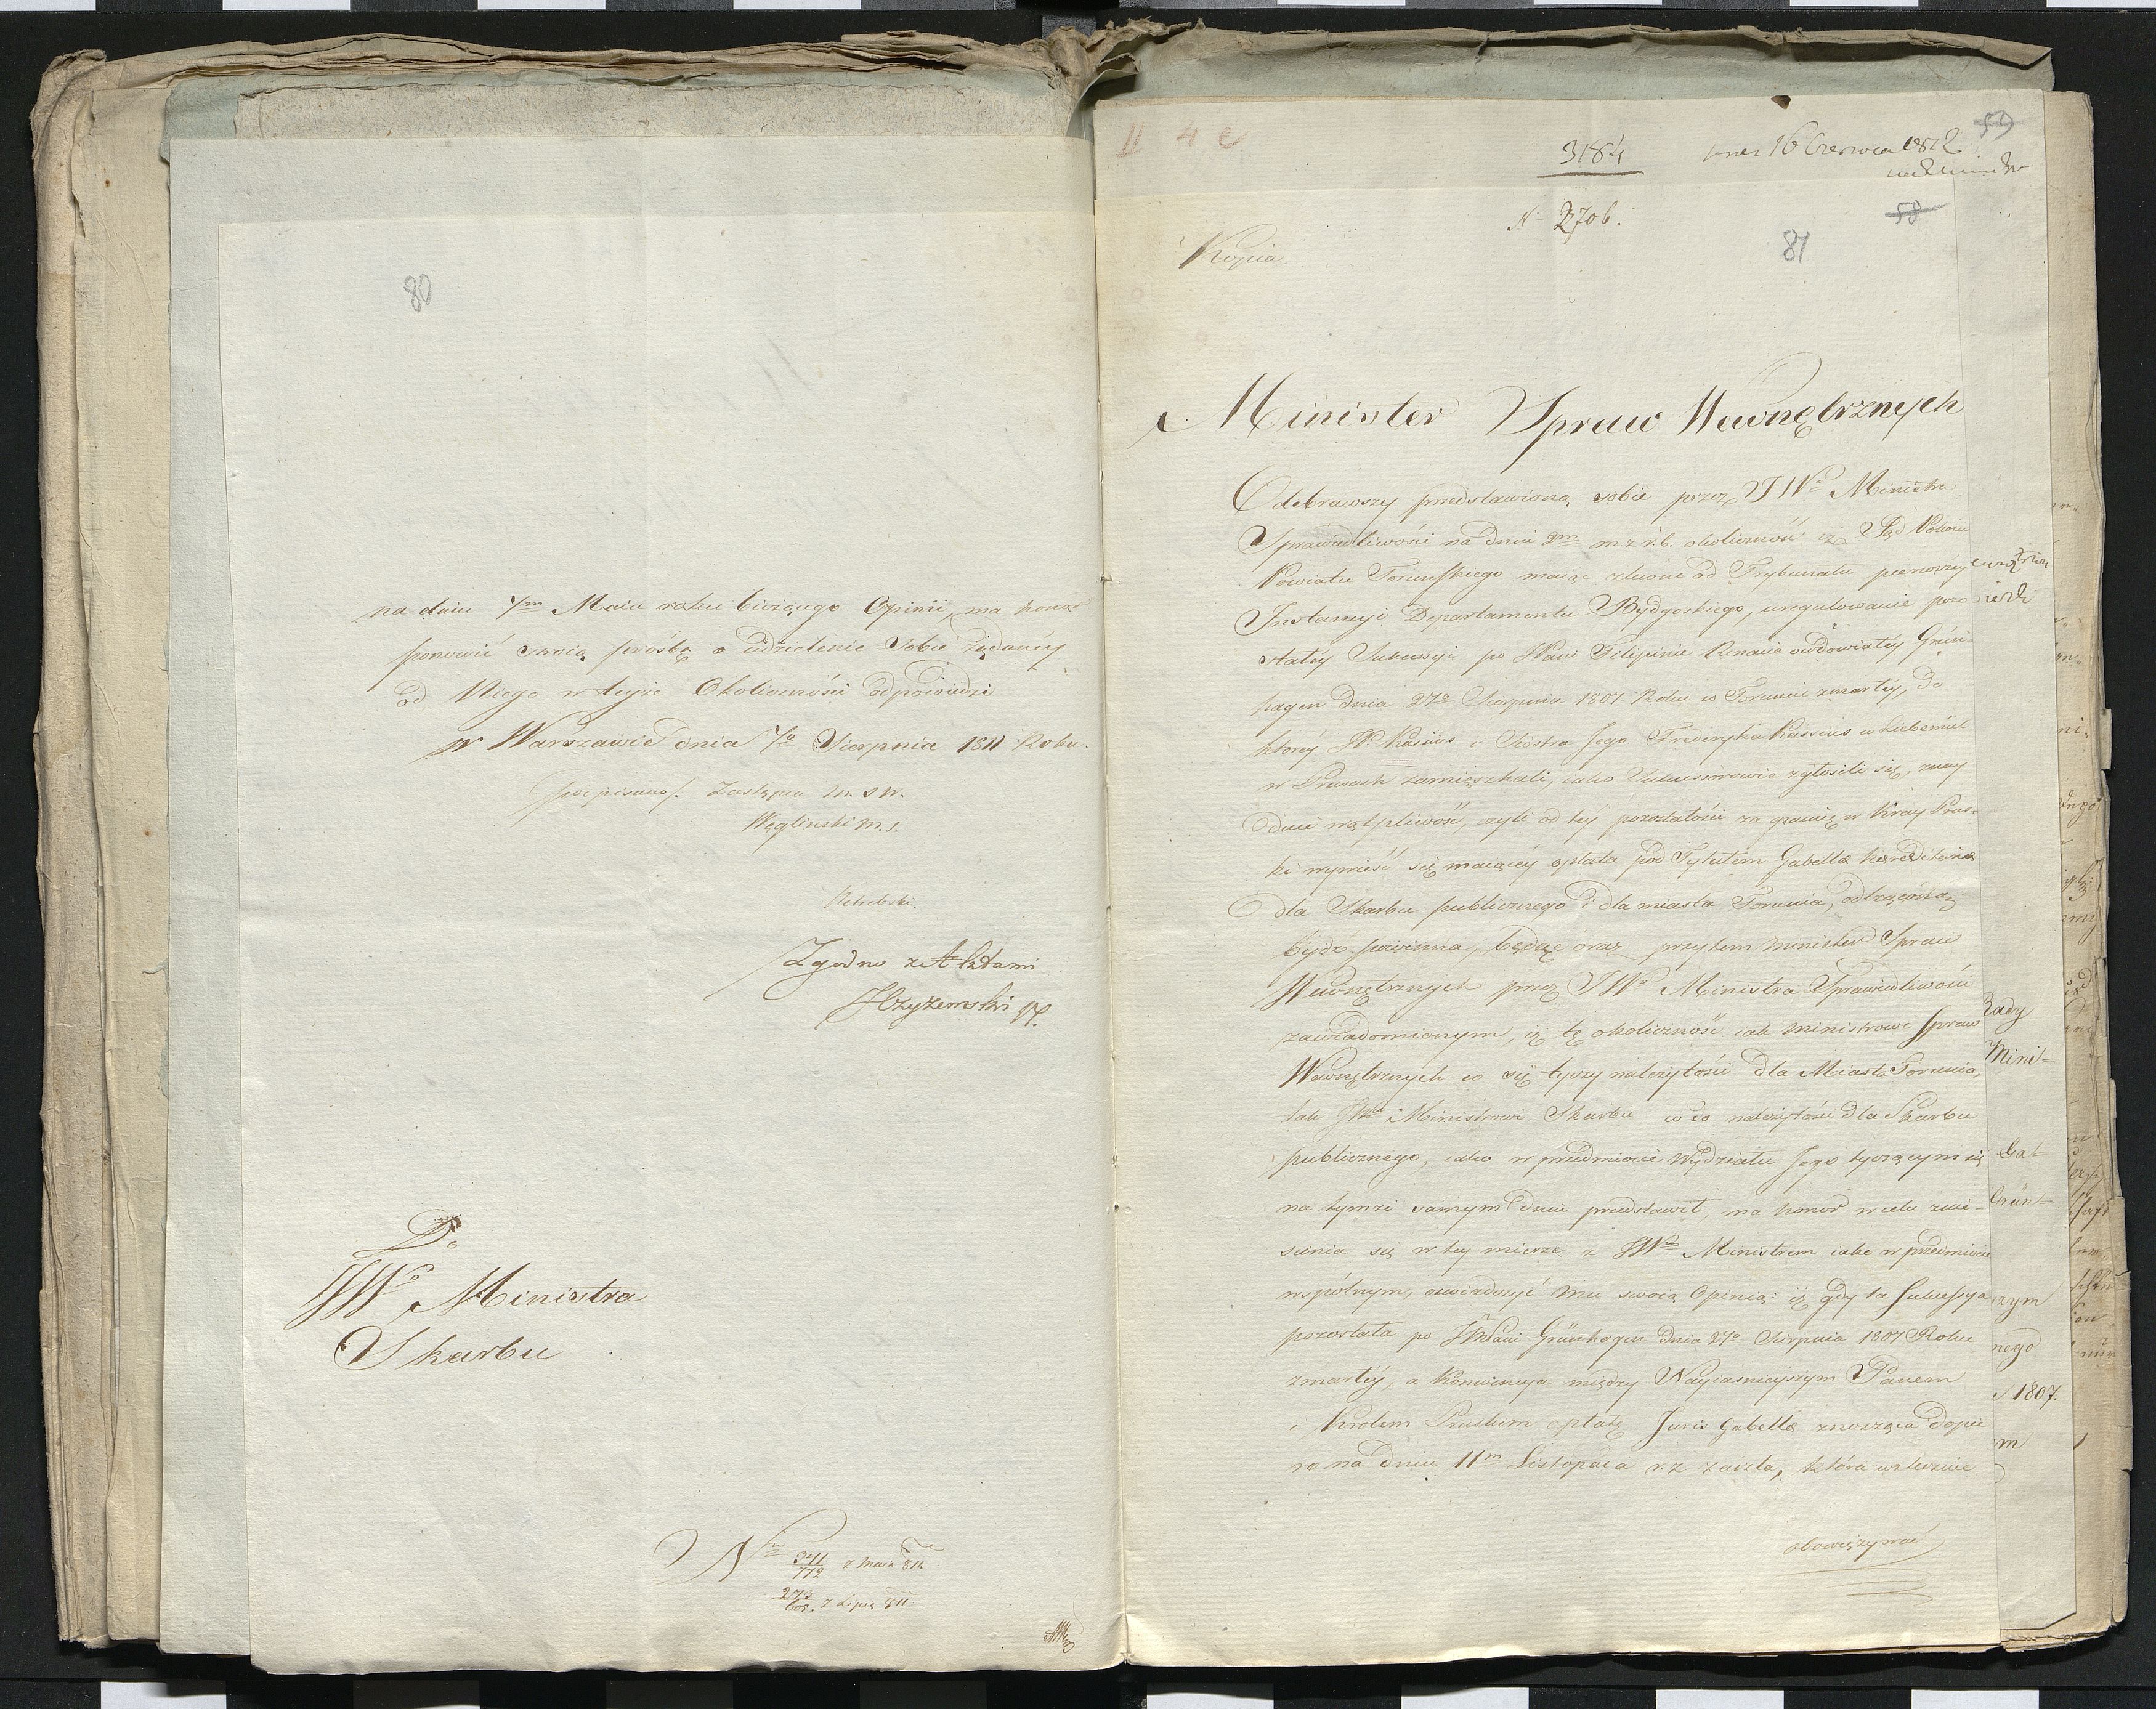 80
na dniu 7m Maia roku bieżącego Opinii, ma honor
ponowić swoią prośbę o udzielenie Sobie żądanéy
od Niego w teyże Okoliczności odpowiedzi
w Warszawie dnia 7o Sierpnia 1811 Roku.
podpisano/. Zastępca M. S W.
Węgliński M. S.
Zgodno z Aktami
Do
JWo Ministra
Skarbu
Nr 341/772 z Maia 811.
z Lipca 811
II 4 e
3184
16 Czerwca 1812
59
N 2706.
58
81
Kopia
Minister Spraw Wewnętrznych
Odebrawszy przedstawioną sobie przez JWo Ministra
Sprawiedliwości na dniu 2m m. z r. b. okoliczność iż Sąd Pokoiu
Powiatu Toruńskiego maiąc zlecone od Trybunału pierwszey
Instancyi Departamentu Bydgoskiego, uregulowanie pozo
stałéy Sukcessyi po JPani Filipinie Renacie owdowiałéy Grün-
hagen dnia 27o Sierpnia 1807 Roku w Toruniu zmarłéy, do
ktorey JP. Kassius i Siostra Jego Fryderyka Kassius w Liebemül
w Prusach zamieszkali, iako Sukcessorowie zgłosili się, znay
duie wątpliwość, czyli od téy pozostałości za granicę w Kray Prus-
ki wynieść się maiącéy opłata pod Tytułem Gabellæ hæreditariæ
dla Skarbu publicznego i dla miasta Torunia, odtrąconą
bydź powinna, będąc oraz przytem Minister Spraw
Wewnętrznych przez JWo Ministra Sprawiedliwości
zawiadomionym, iż tę okoliczność iak Ministrowi Spraw
Wewnętrznych co się tyczy należytości dla Miasta Torunia,
tak JWu Ministrowi Skarbu co do należytości dla Skarbu
publicznego, iako w przedmiocie Wydziału Jego tyczącym się
na tymże samym dniu przedstawił, ma honor w celu znie-
sienia się w tey mierze z JWm Ministrem iako w przedmiocie
wspólnym, oświadczyć mu swoią Opinią: iż gdy ta Sukcessya
pozostała po JPani Grünhagen dnia 27o Sierpnia 1807 Roku
zmarłéy, a Konwencya między Nayiaśnieyszym Panem
i Królem Pruskim opłatę Juris Gabellæ znosząca dopie
ro na dniu 11m Listopada r. z zaszła, która wstecznie
obowiązywać
Rady
Mini=
Ga=
Grün=
czym
nego
1807.